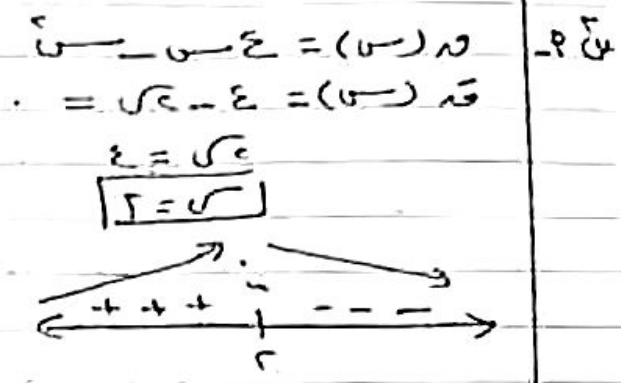 س٢ أ- ق(س) = ٤س - س٢
قَ(س) = ٤ - ٢س = ٠
٢س = ٤
س = ٢
٠
+ + + - - -
٢